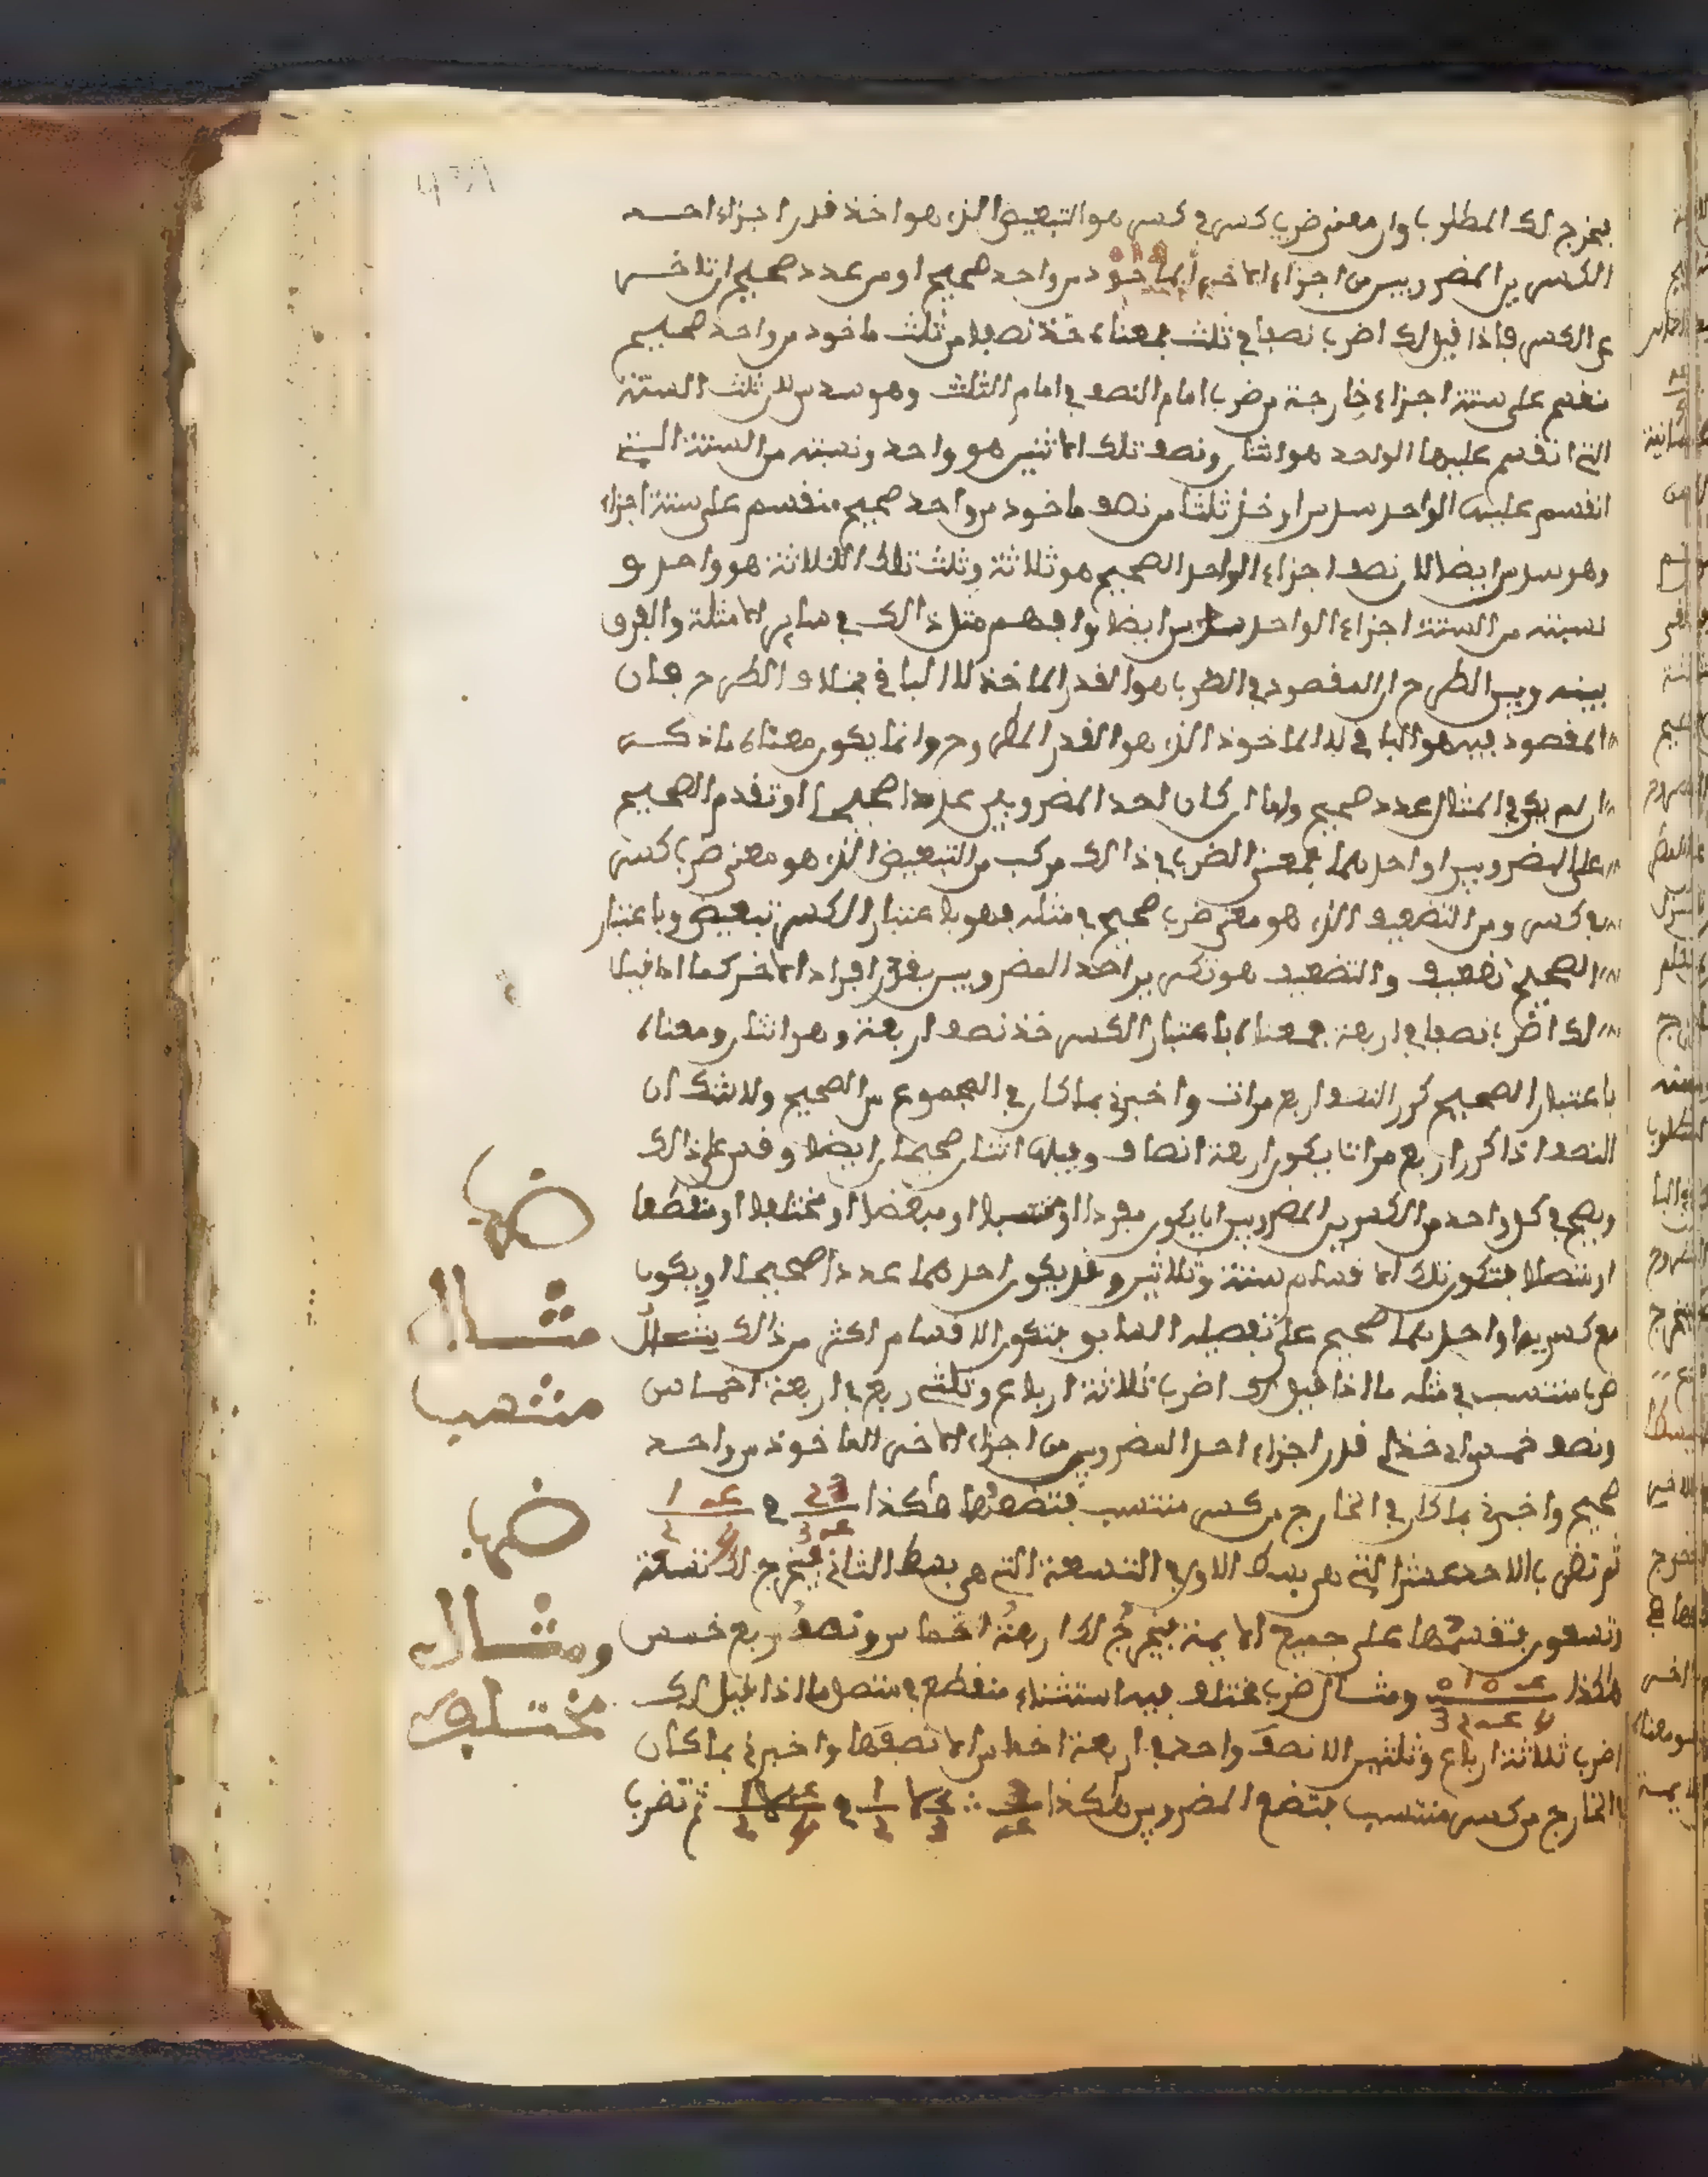 يخرج لك المطلوب وان معنى ضرب كسر في كسر هو التبعيض الذي هو اخذ قدر اجزاء احد
الكسرين المضروبين من اجزاء الاخر الماخود من واحد صحيح او من عدد صحيح ان تاخر
عن الكسر فاذا قيل لك اضرب نصفا في ثلث فمعناه خذ نصفا من ثلث ماخود من واحد صحيح
منقسم على ستة اجزاء خارجة من ضرب امام النصف في امام الثلث وهو سدس لان ثلث الستة
التي انقسم عليها الواحد هو اثنان ونصف تلك الاثنين هو واحد ونسبته من الستة التي
انقسم عليها الواحد سدس او خذ ثلثا من نصف ماخود من واحد صحيح منقسم على ستة اجزاء
وهو سدس ايضا لان نصف اجزاء الواحد الصحيح هو ثلاثة وثلث تلك الثلاثة هو واحد و
نسبته من الستة اجزاء الواحد سدس ايضا وافهم مثل ذالك في ساير الامثلة والفرق
بينه وبين الطرح ان المقصود في الضرب هو القدر الماخذ لا الباقي بخلاف الطرح فان
المقصود فيه هو الباقي لا الماخوذ الذي هو القدر المطروح وانما يكون معناه ما ذكر
ان لم يكن في المثال عدد صحيح واما ان كان احد المضروبين عددا صحيحا او تقدم الصحيح
على المضروبين او احدهما فمعنى الضرب في ذالك مركب من التبعيض الذي هو معنى ضرب كسر
في كسر ومن التضعيف الذي هو معنى ضرب صحيح في مثله فهو باعتبار الكسر تبعيض وباعتبار
الصحيح تضعيف والتضعيف هو تكرير احد المضروبين بقدر افراد الاخر كما اذا قيل
لك اضرب نصفا في اربعة فمعناه باعتبار الكسر خذ نصف اربعة وهو اثنان ومعناه
باعتبار الصحيح كرر النصف اربع مرات واخبرني بما كان في المجموع من الصحيح ولا شك ان
النصف اذا كرر اربع مرات يكون اربعة انصاف وفيها اثنان صحيحان ايضا وقس على ذالك
ويصح في كل واحد من الكسرين المضروبين ان يكون مفردا او منتسبا او مبعضا او مختلفا او منقطعا
او متصلا فتكون تلك الاقسام ستة وثلاثين وقد يكون احدهما عددا صحيحا او يكون
مع كسريهما واحدهما صحيح على تفصيله السابق فتكون الاقسام اكثر من ذالك مثال
ضرب منتسب في مثله ما اذا قيل لك اضرب ثلاثة ارباع وثلثي ربع في اربعة اخماس
ونصف خمس اي خذ قدر اجزاء احد المضروبين من اجزاء الاخر الماخوذ من واحد
صحيح واخبرني بما كان في الخارج من كسر منتسب فتضعها هكذا
ثم تضرب الاحد عشر التي هي بسط الاول في التسعة التي هي بسط الثاني يخرج لك تسعة
وتسعون فتقسمها على جميع الايمة يخرج لك اربعة اخماس ونصف ربع خمس
هكذا ومثال ضرب مختلف فيه استثناء منقطع في متصل ما اذا قيل لك
اضرب ثلاثة ارباع وثلثين الا نصف واحد في اربعة اخماس الا نصفها واخبرني بما كان
الخارج من كسر منتسب فتضع المضروبين هكذا ثم تضرب
ضرب
مثال
منتسب
ضرب
ومثال
مختلف